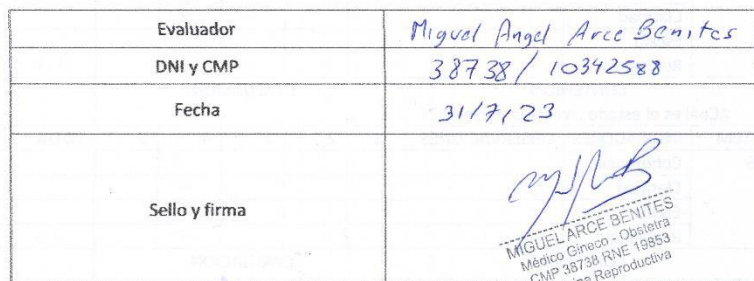 Evaluador Miguel Angel Arce Benites
DNI y CMP 38738 / 10342588
Fecha 31/7/23
Sello y firma
MIGUEL ARCE BENITES
Médico Gineco - Obstetra
CMP 38738 RNE 19853
Reproductiva